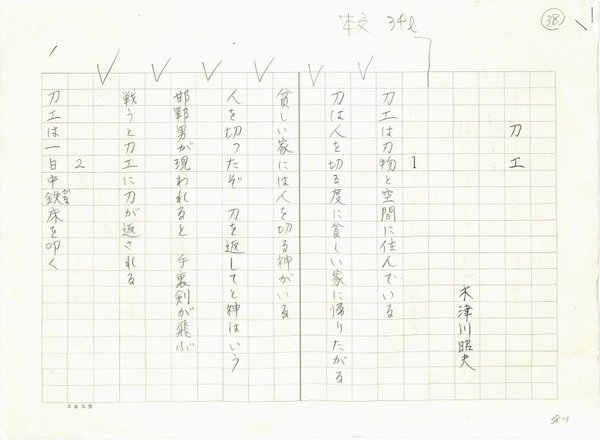 38
本文 34ℓ
刀工
木津川昭夫
1
刀工は刃物と空間に住んでいる
刀は人を切る度に貧しい家に帰りたがる
貧しい家には人を切る神がいる
人を切ったぞ 刀を返してと神はいう
邯鄲男が現われると 手裏剣が飛ぶ
戦うと刀工に刀が返される
2
刀工は一日中鉄床を叩く
38-1